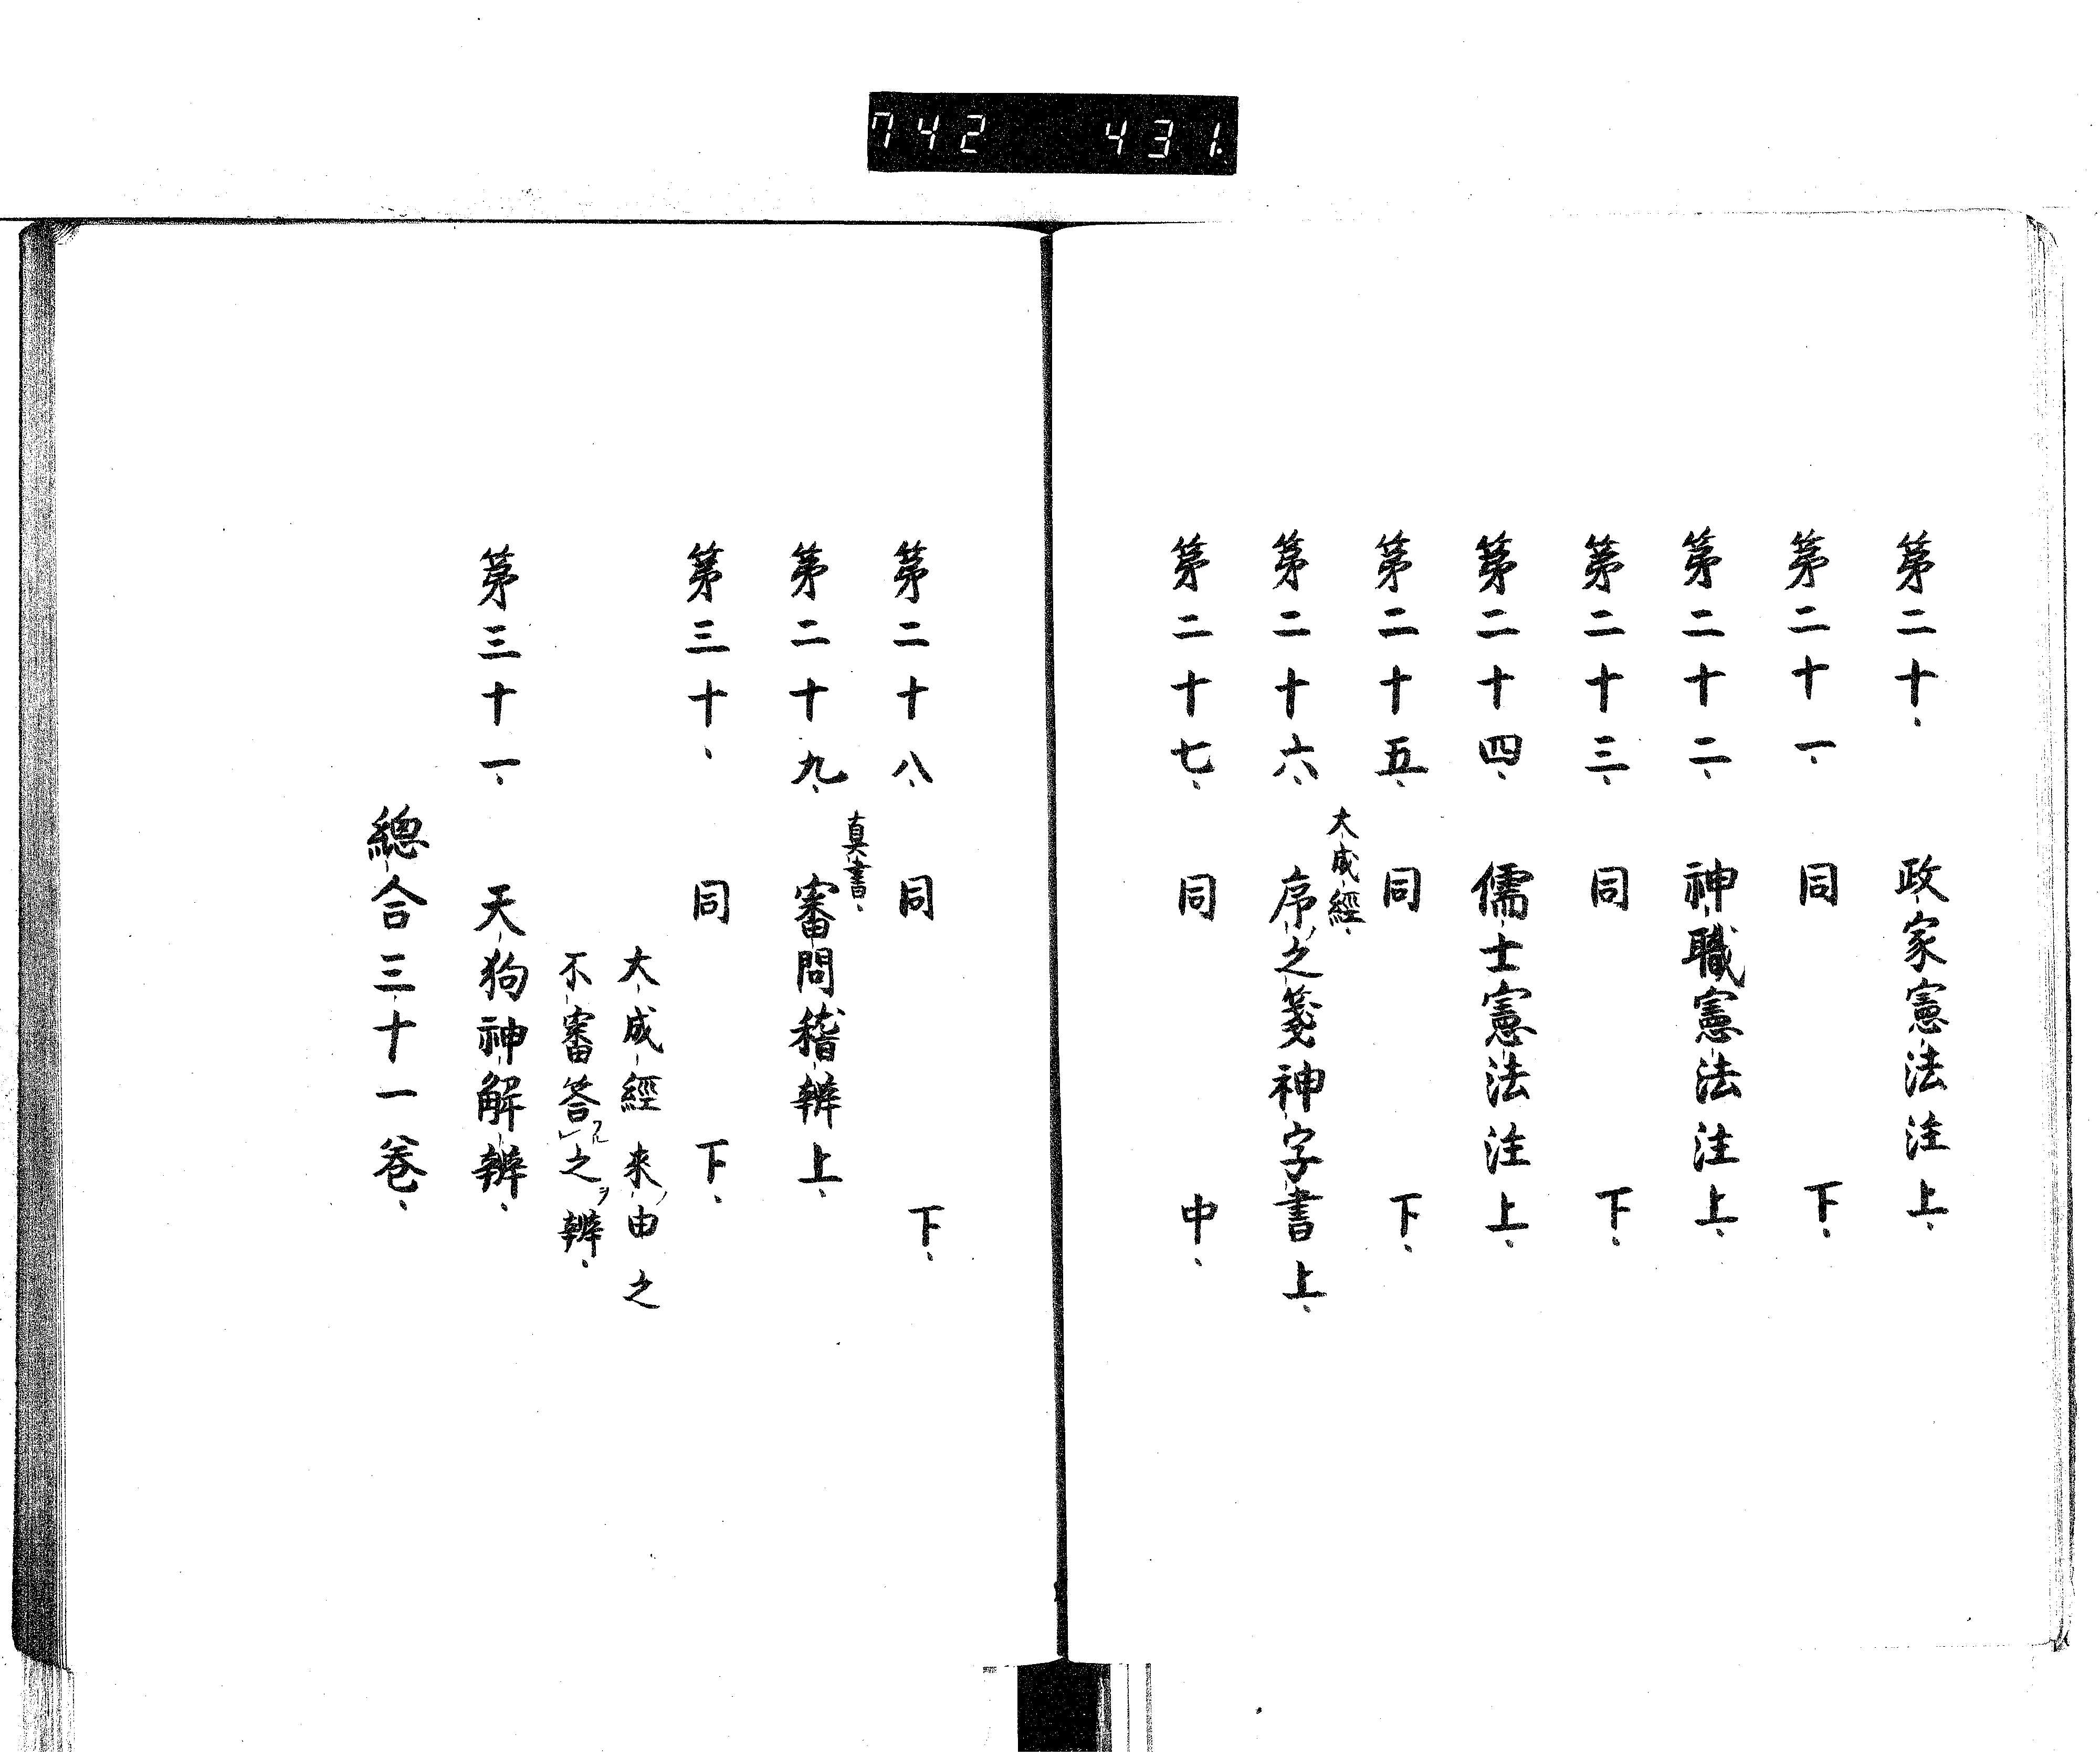 742 431
第二十、 政家憲法注上、
第二十一、 同 下、
第二十二、 神職憲法注上、
第二十三、 同 下、
第二十四、 儒士憲法注上、
第二十五、 同 下、
大成經、
第二十六、 序之箋神字書上、
第二十七、 同 中、
第二十八、 同 下、
真書、
第二十九、 審問稽辨上、
第三十、 同 下、
大成經來ノ由之
不審答ルレ之ヲ辨、
第三十一、 天狗神解辨、
總合三十一卷、